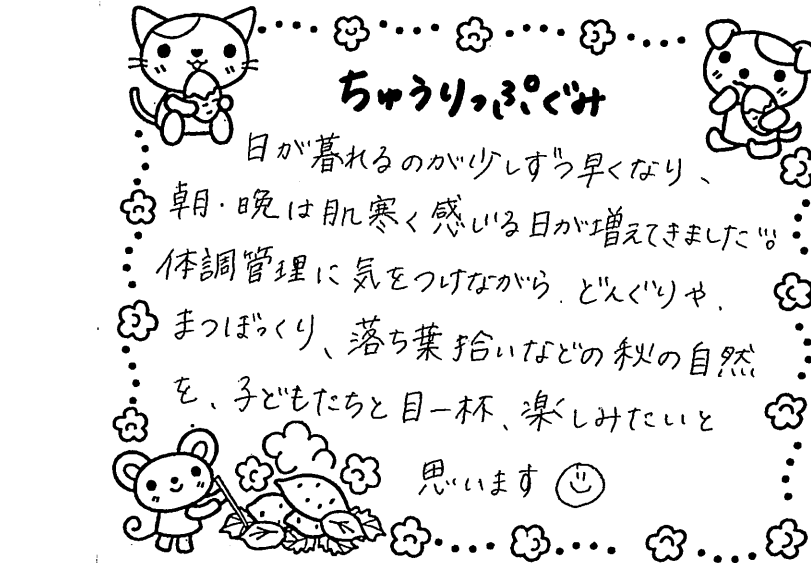 ちゅうりっぷぐみ
日が暮れるのが少しずつ早くなり、
朝・晩は肌寒く感じる日が増えてきました。
体調管理に気をつけながら、どんぐりや、
まつぼっくり、落ち葉拾いなどの秋の自然
を、子どもたちと目一杯、楽しみたいと
思います